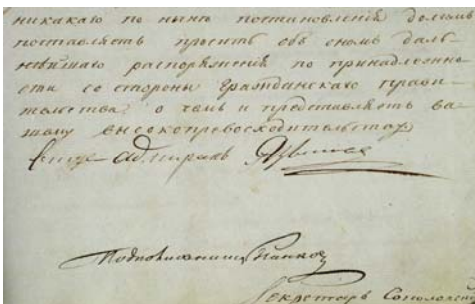 никакаго по ныне постановленія долгомъ
поставляетъ просить объ ономъ даль-
нейшаго распоряженія по принадлежно-
сти со стороны гражданскаго прави-
тельства о чемъ и представляетъ ва-
шему высокопревосходительству
Вице Адмиралъ
Подполковникъ
Секретарь